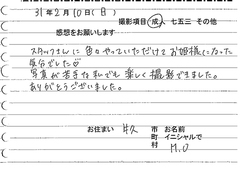 31年2月10日(日)
撮影項目 成人 七五三 その他
感想をお願いします
スタッフさんに色々やっていただけてお姫様になった
気分でした♡
写真が苦手な私でも楽しく撮影できました。
ありがとうございました。
お住まい 牛久 市町村 お名前 イニシャルで M.O